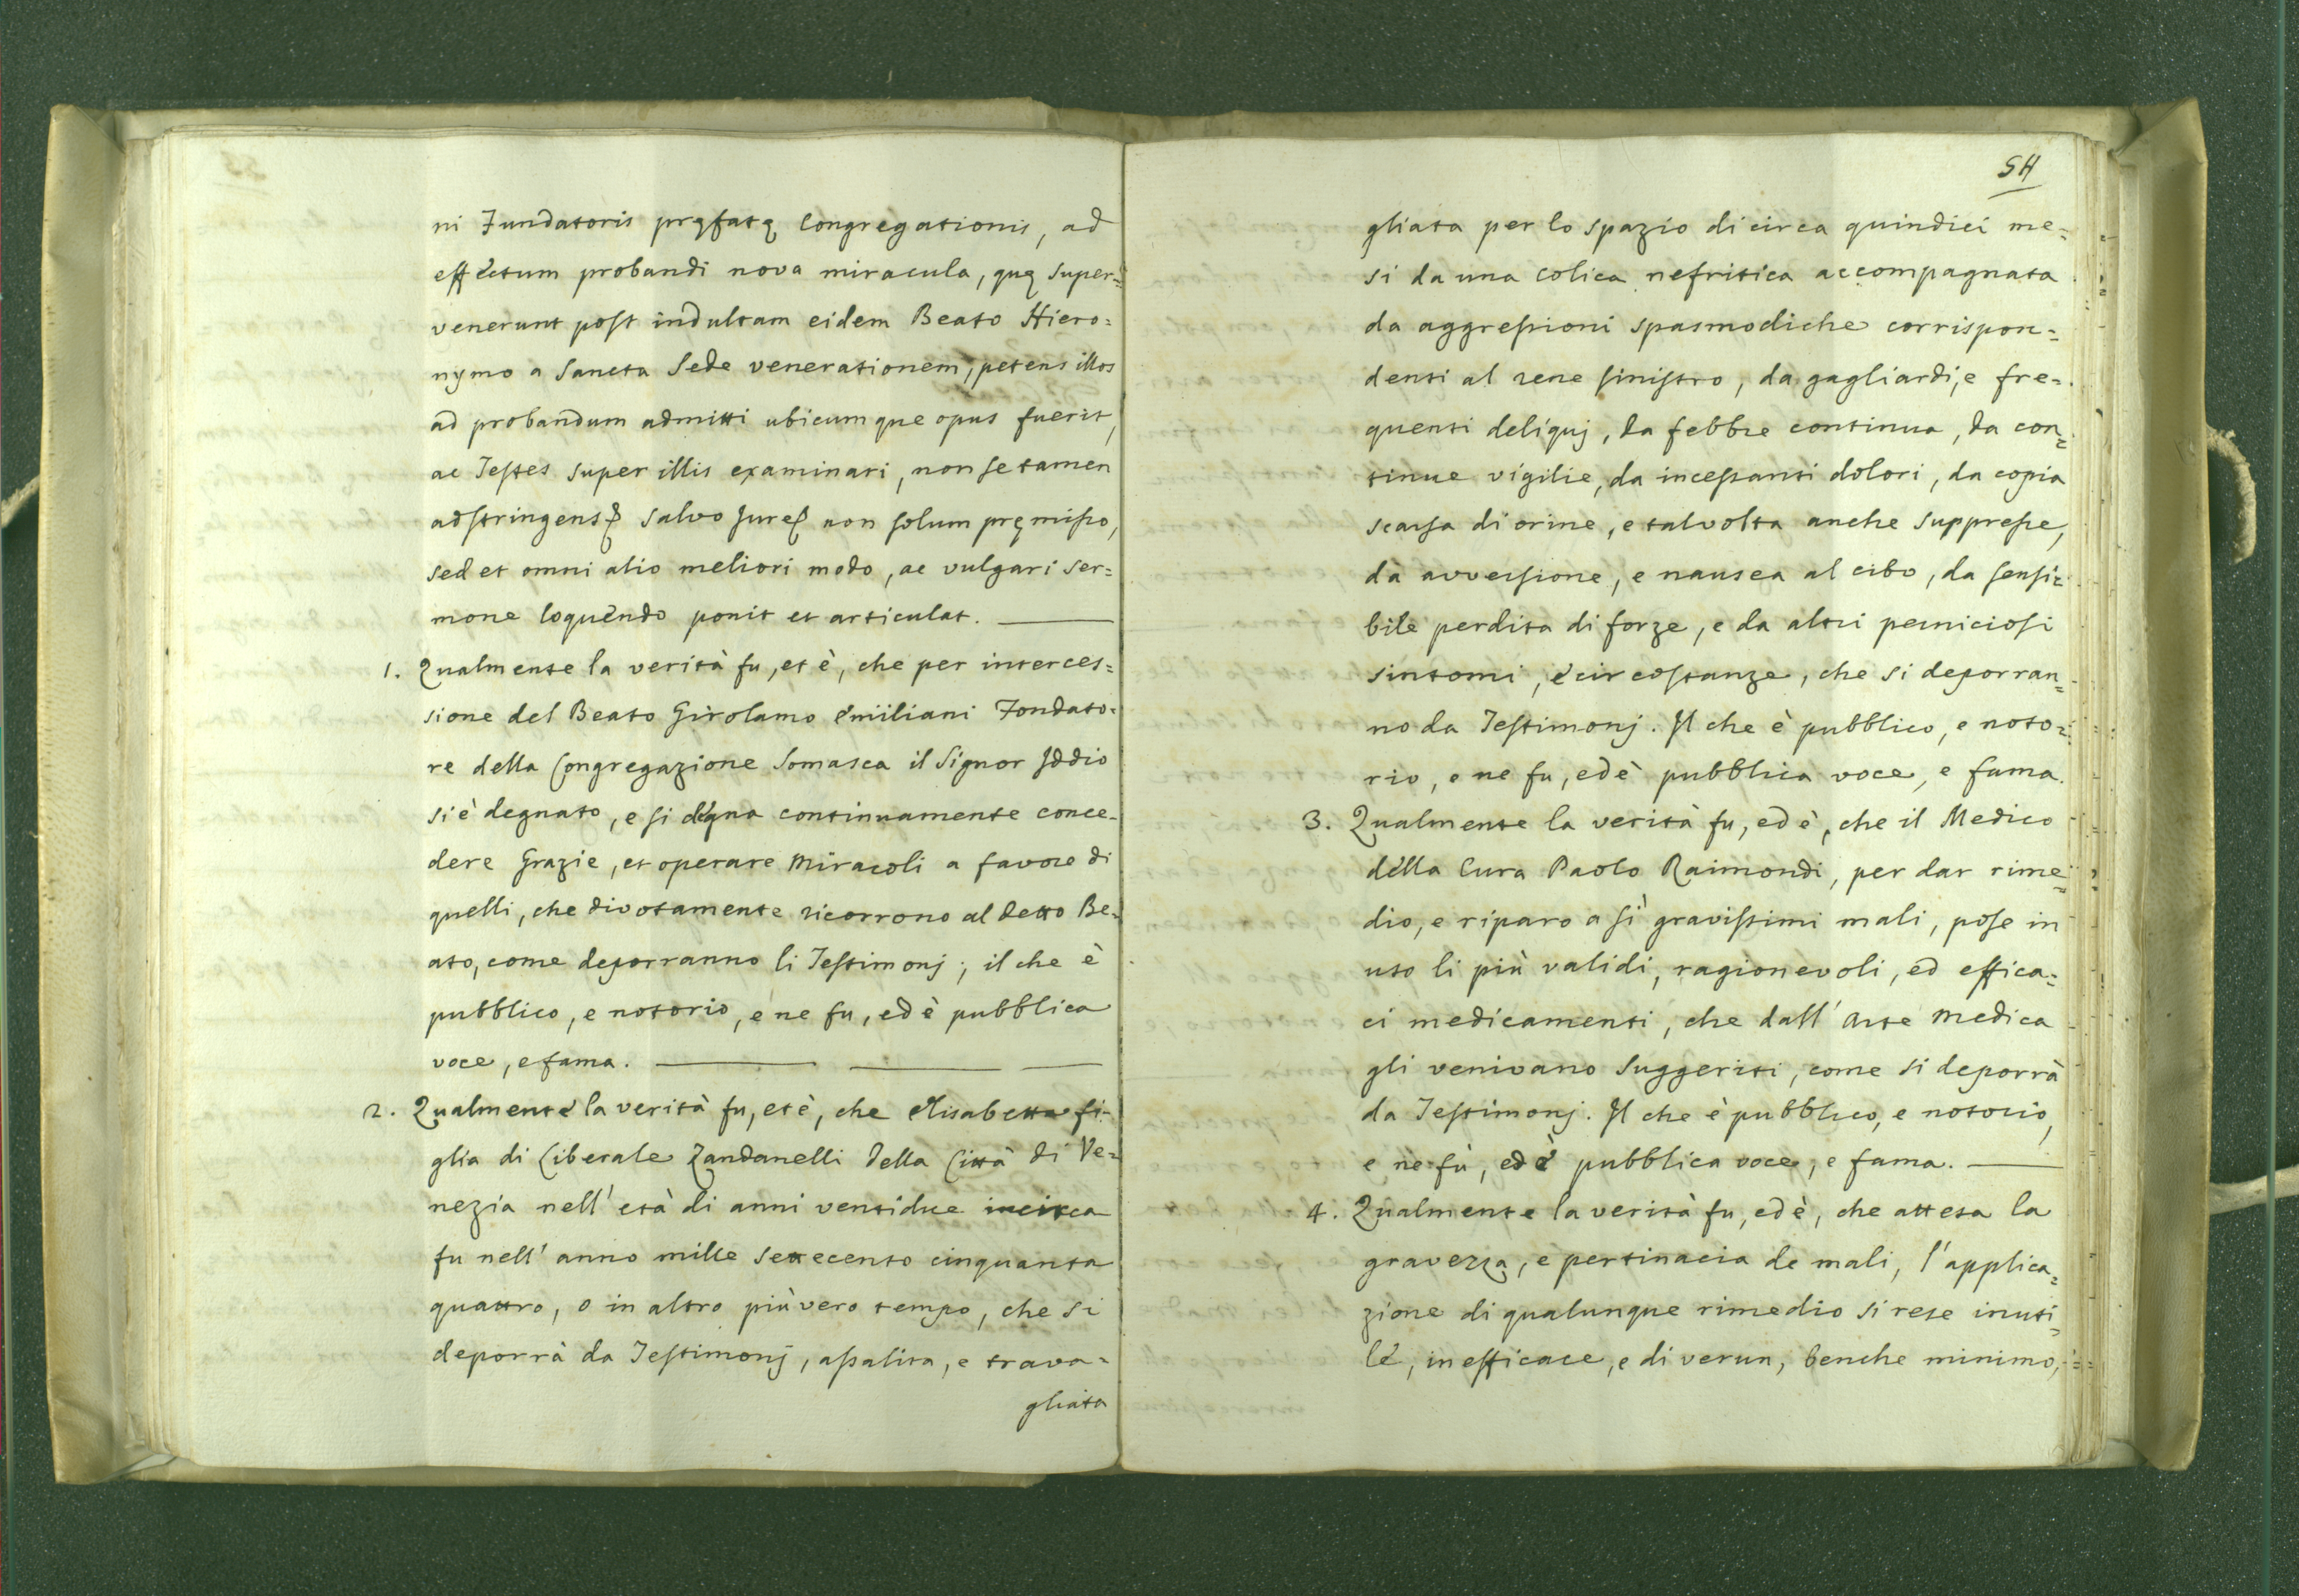 ni Fundatoris pręfatę Congregationis, ad
effectum probandi nova miracula, quę super=
venerunt post indultam eidem Beato Hiero=
nymo a Sancta Sede venerationem, petens illos
ad probandum admitti ubicumque opus fuerit,
ac Testes super illis examinari, non se tamen
adstringens salvo Jure non solum pręmisso,
sed et omni alio meliori modo, ac vulgari ser=
mone loquendo ponit et articulat.
1. Qualmente la verità fu, et è, che per interces=
sione del Beato Girolamo Emiliani Fondato=
re della Congregazione Somasca il Signor Iddio
si è degnato, e si degna continuamente conce=
dere Grazie, et operare Miracoli a favore di
quelli, che divotamente ricorrono al detto Be=
ato, come deporranno li Testimonj; il che è
pubblico, e notorio, e ne fu, ed è pubblica
voce, e fama.
2. Qualmente la verità fu, et è, che Elisabetta fi=
glia di Liberale Zandanelli della Città di Ve=
nezia nell' età di anni ventidue incirca
fu nell' anno mille settecento cinquanta
quattro, o in altro più vero tempo, che si
deporrà da Testimonj, assalita, e trava=
gliata
54
gliata per lo spazio di circa quindici me=
si da una colica nefritica accompagnata
da aggressioni spasmodiche corrispon=
denti al rene sinistro, da gagliardi, e fre=
quenti deliquj, da febbre continua, da con=
tinue vigilie, da incessanti dolori, da copia
scarsa di orine, e talvolta anche suppresse,
da avversione, e nausea al cibo, da sensi=
bile perdita di forze, e da altri perniciosi
sintomi, e circostanze, che si deporran=
no da Testimonj. Il che è pubblico, e noto=
rio, e ne fu, ed è pubblica voce, e fama.
3. Qualmente la verità fu, ed è, che il Medico
della Cura Paolo Raimondi, per dar rime=
dio, e riparo a sì gravissimi mali, pose in
uso li più validi, ragionevoli, ed effica=
ci medicamenti, che dall' Arte Medica
gli venivano suggeriti, come si deporrà
da Testimonj. Il che è pubblico, e notorio,
e ne fù, ed è pubblica voce, e fama.
4. Qualmente la verità fu, ed è, che attesa la
gravezza, e pertinacia de mali, l'applica=
zione di qualunque rimedio si rese inuti=
le, inefficace, e di verun, benche minimo,